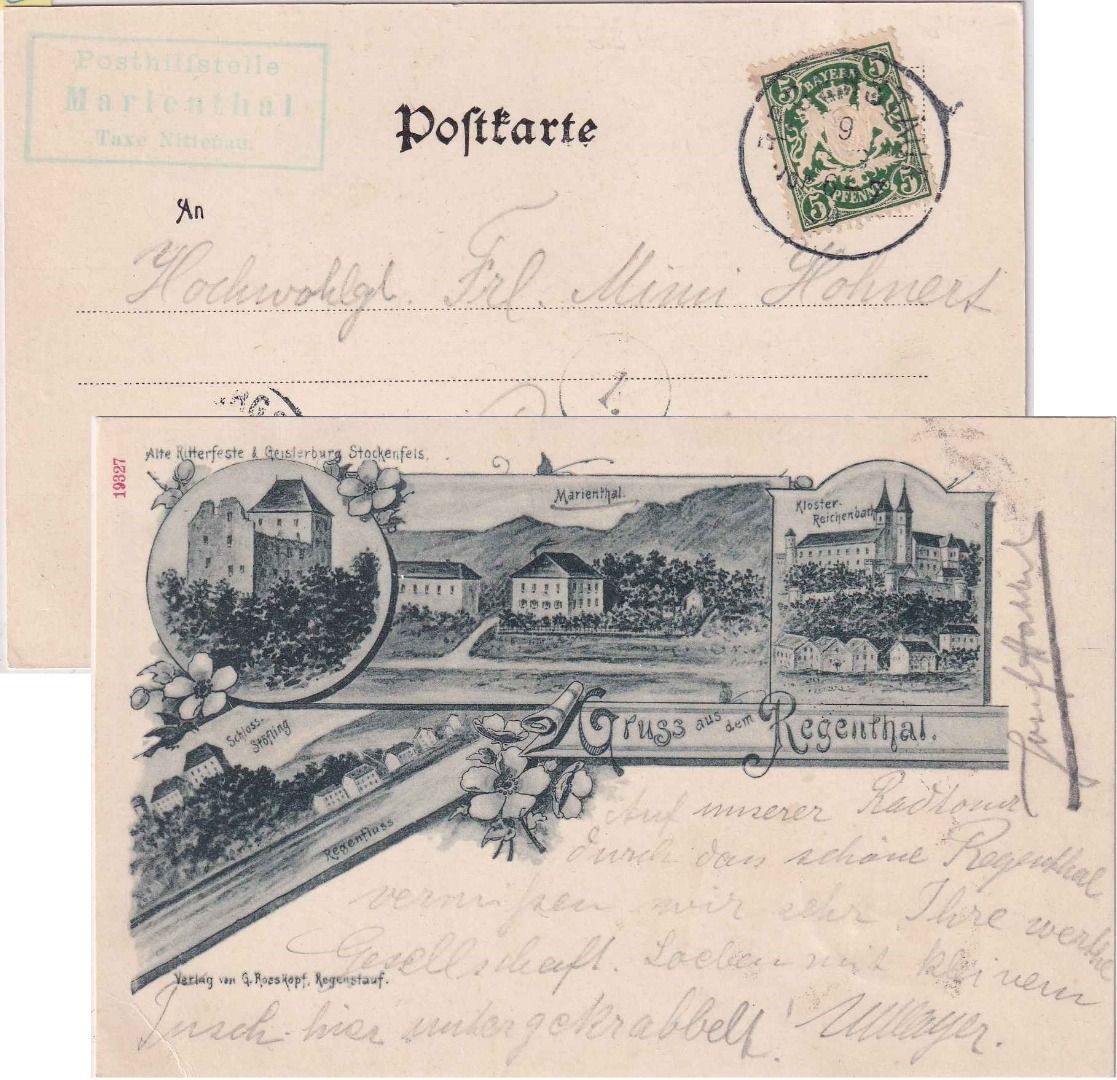 Posthilfstelle
Marienthal
Taxe Nittenau.
Postkarte
BAYERN
5
5
5
5
PFENNIG
9
An
Hochwohlgb. Frl. Minni Hohnert
1.
19327
Alte Ritterfeste & Geisterburg Stockenfels.
Marienthal.
Kloster-
Reichenbach
Schloss-
Stöfling
Regenfluss
Gruss aus dem Regenthal.
Auf unserer Radtour
durch das schöne Regenthal
vermissen wir sehr Ihre werthe
Gesellschaft. Soeben mit kleinem
hier untergekrabbelt! Mayer.
Verlag von G. Rosskopf, Regenstauf.